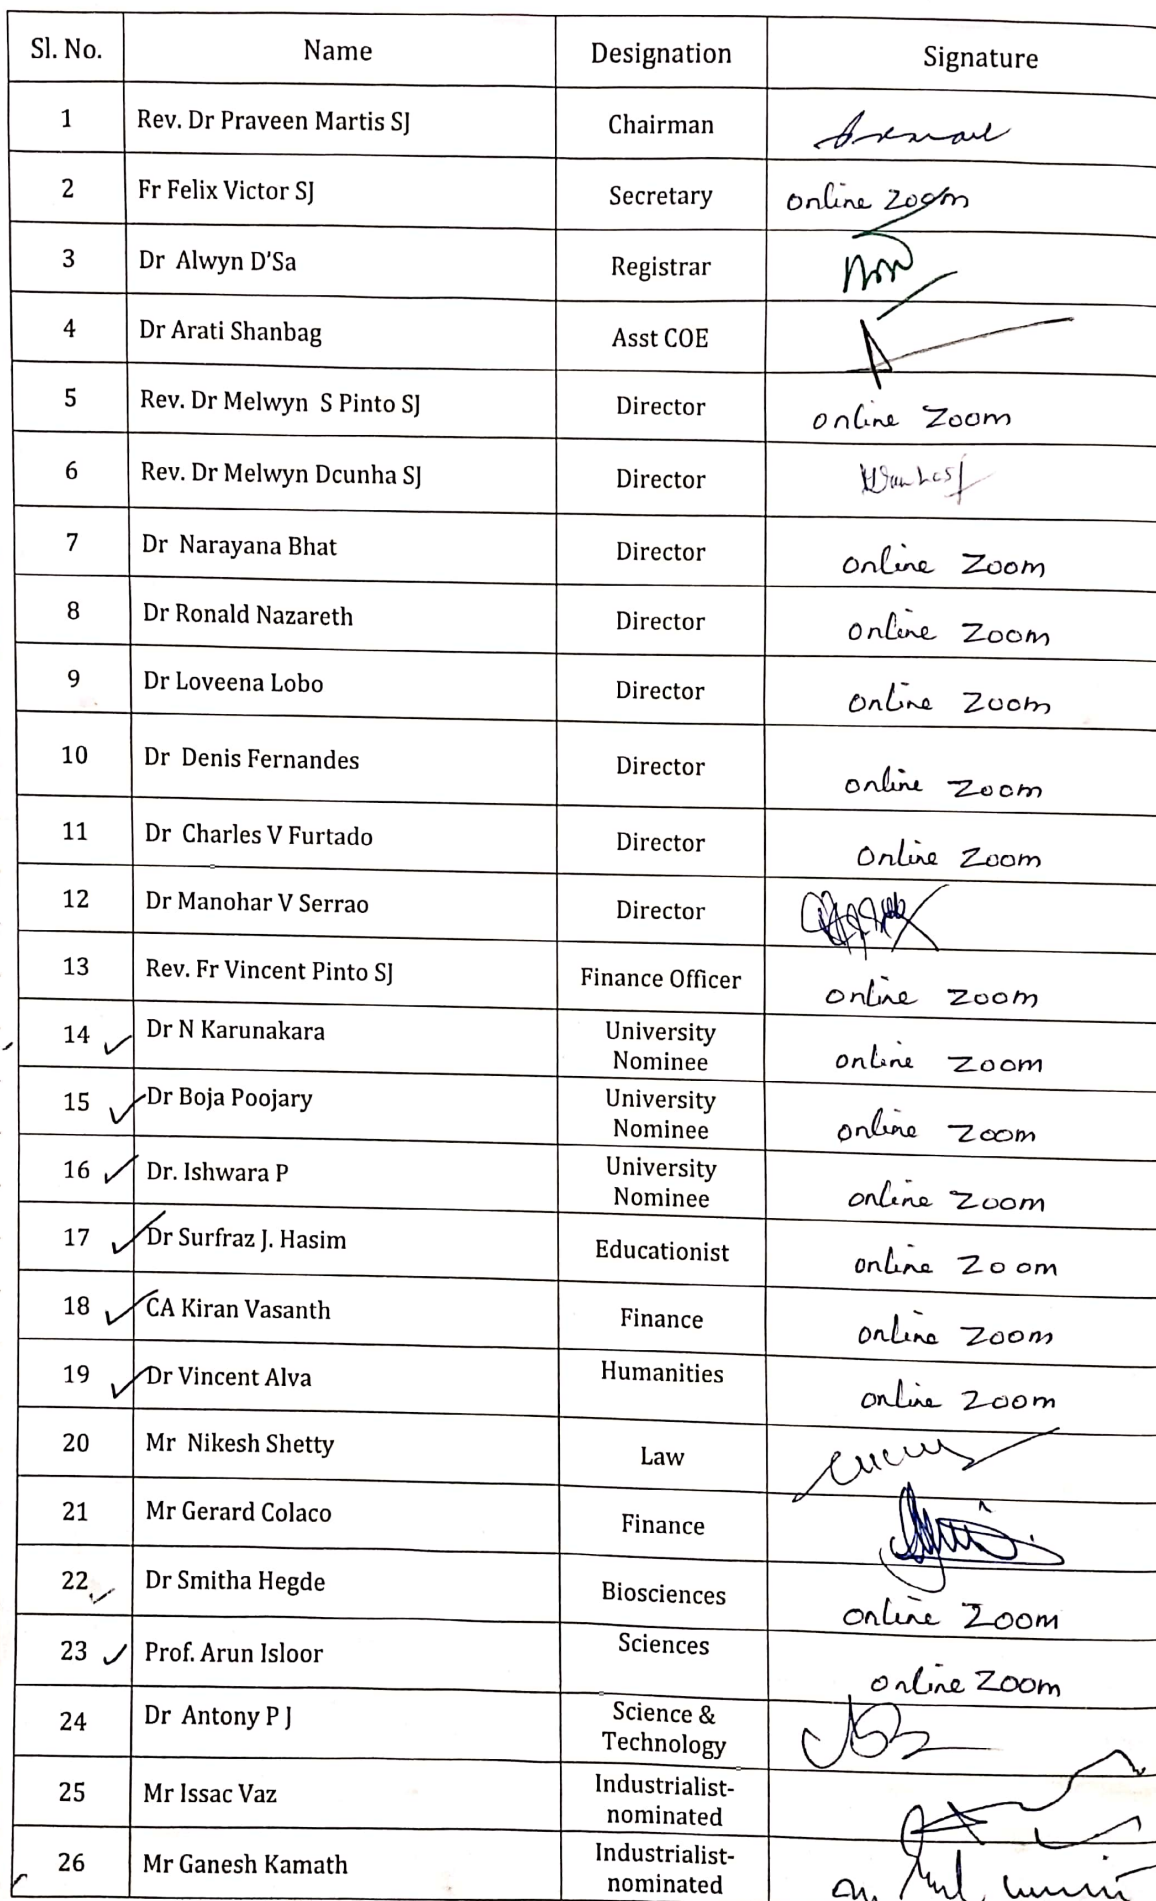 Sl. No. Name Designation Signature
1 Rev. Dr Praveen Martis SJ Chairman
2 Fr Felix Victor SJ Secretary online zoom
3 Dr Alwyn D'Sa Registrar
4 Dr Arati Shanbag Asst COE
5 Rev. Dr Melwyn S Pinto SJ Director online Zoom
6 Rev. Dr Melwyn Dcunha SJ Director
7 Dr Narayana Bhat Director online Zoom
8 Dr Ronald Nazareth Director online Zoom
9 Dr Loveena Lobo Director online Zoom
10 Dr Denis Fernandes Director online Zoom
11 Dr Charles V Furtado Director online Zoom
12 Dr Manohar V Serrao Director
13 Rev. Fr Vincent Pinto SJ Finance Officer online zoom
14 Dr N Karunakara University
Nominee online Zoom
15 Dr Boja Poojary University
Nominee online Zoom
16 Dr. Ishwara P University
Nominee online Zoom
17 Dr Surfraz J. Hasim Educationist online Zoom
18 CA Kiran Vasanth Finance online Zoom
19 Dr Vincent Alva Humanities online Zoom
20 Mr Nikesh Shetty Law
21 Mr Gerard Colaco Finance
22 Dr Smitha Hegde Biosciences online Zoom
23 Prof. Arun Isloor Sciences online Zoom
24 Dr Antony P J Science &
Technology
25 Mr Issac Vaz Industrialist-
nominated
26 Mr Ganesh Kamath Industrialist-
nominated